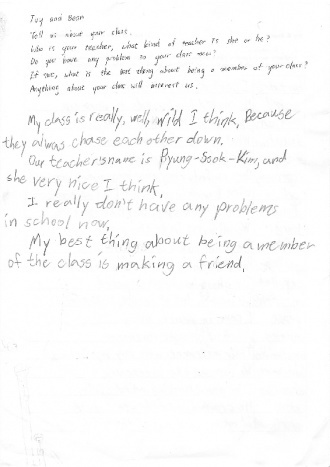 Ivy and Bean
Tell us about your class.
Who is your teacher, what kind of teacher is she or he?
Do you have any problem in your class now?
If sure, what is the best thing about being a member of your class?
Anything about your class will interest us.
My class is really, well, wild I think, Because
they always chase each other down.
Our teacher's name is Byung-Seok-Kim, and
she very nice I think.
I really don't have any problems
in school now.
My best thing about being a member
of the class is making a friend.